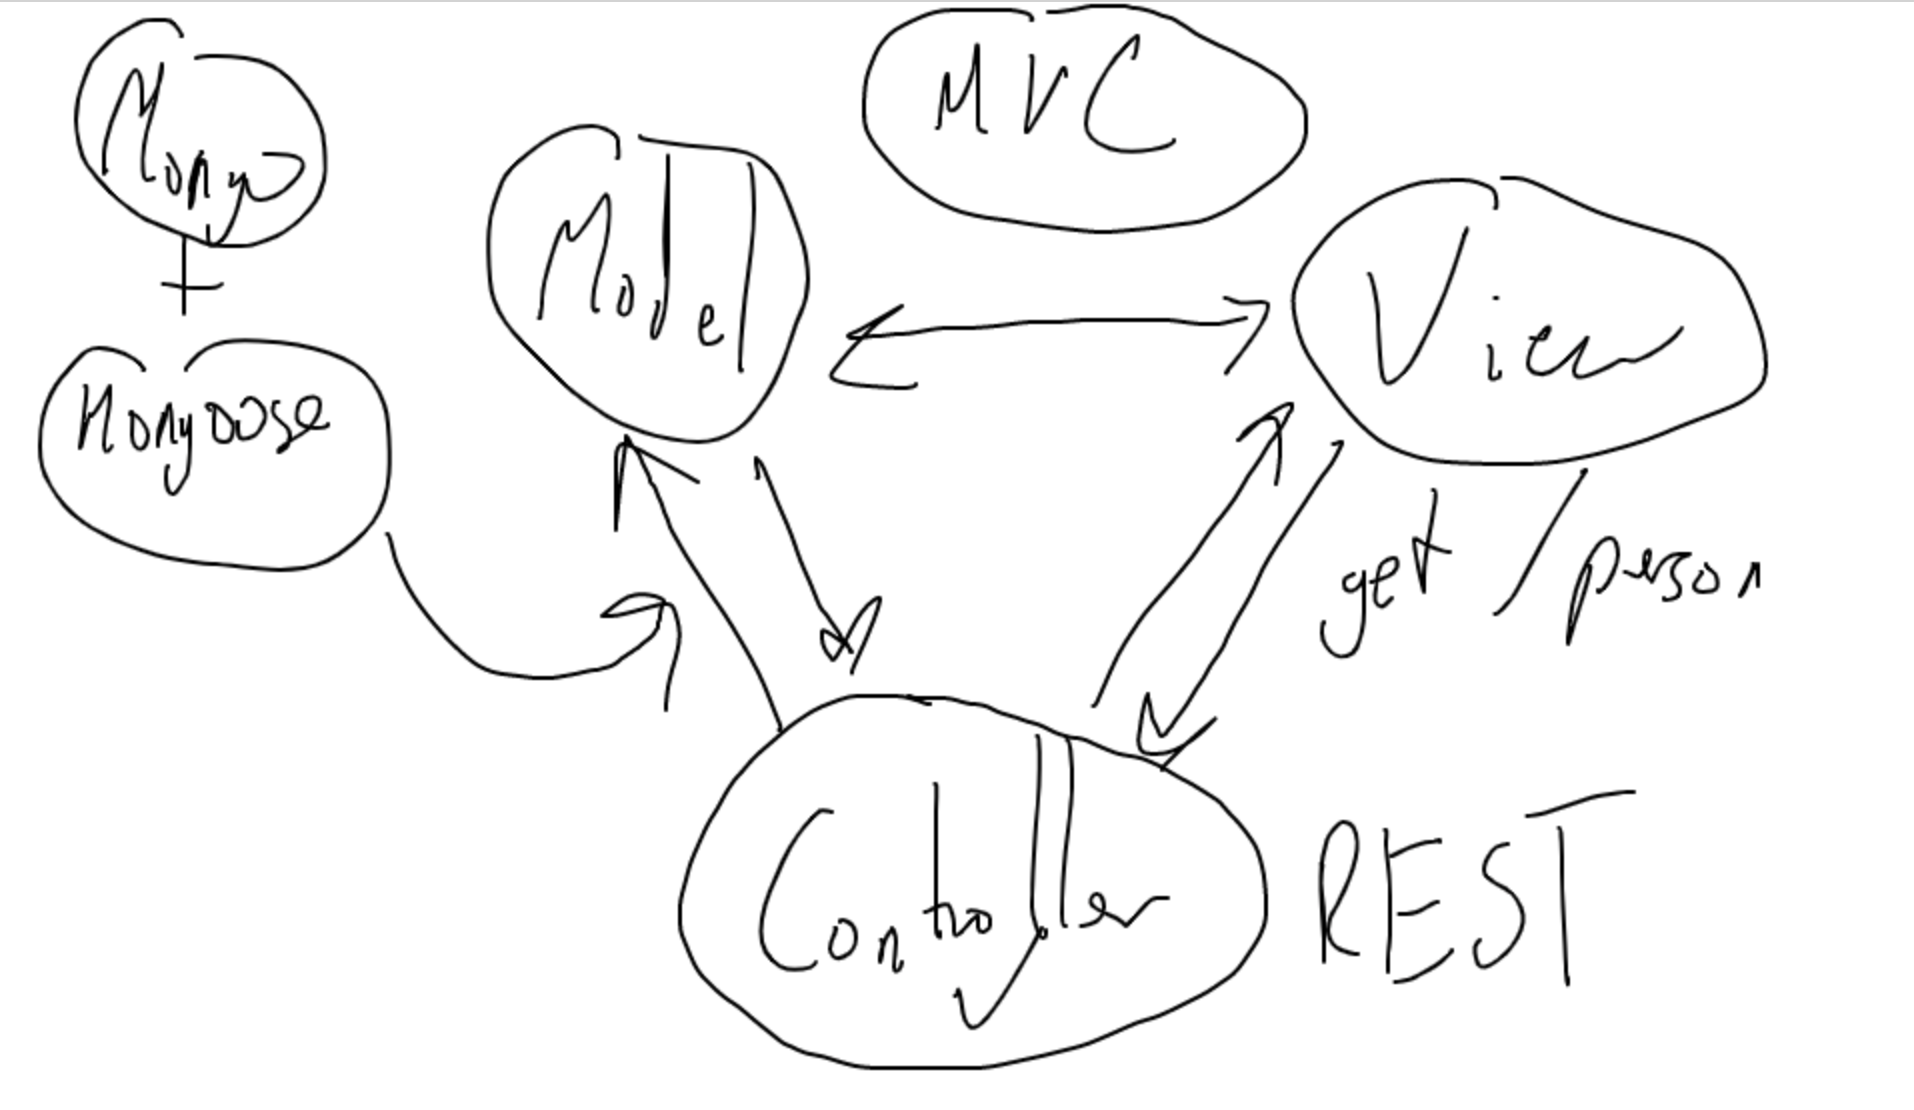 MVC
Mongo
+
Mongoose
Model
View
get /person
Controller
REST